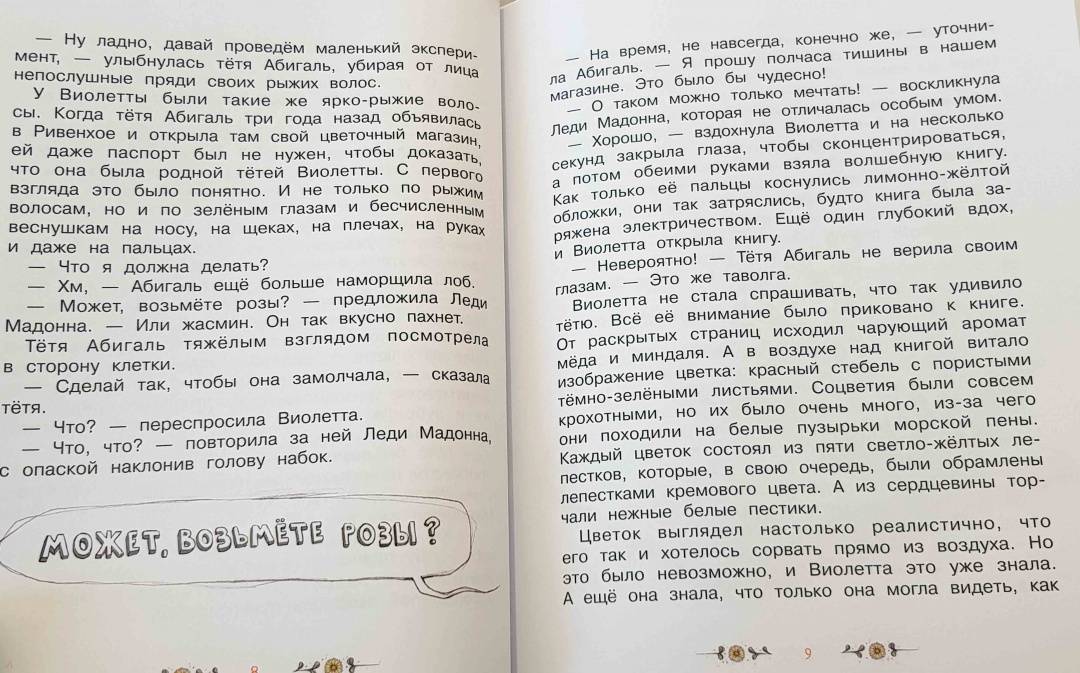 — Ну ладно, давай проведём маленький экспери-
мент, — улыбнулась тётя Абигаль, убирая от лица
непослушные пряди своих рыжих волос.
У Виолетты были такие же ярко-рыжие воло-
сы. Когда тётя Абигаль три года назад объявилась
в Ривенхое и открыла там свой цветочный магазин,
ей даже паспорт был не нужен, чтобы доказать,
что она была родной тётей Виолетты. С первого
взгляда это было понятно. И не только по рыжим
волосам, но и по зелёным глазам и бесчисленным
веснушкам на носу, на щеках, на плечах, на руках
и даже на пальцах.
— Что я должна делать?
— Хм, — Абигаль ещё больше наморщила лоб.
— Может, возьмёте розы? — предложила Леди
Мадонна. — Или жасмин. Он так вкусно пахнет.
Тётя Абигаль тяжёлым взглядом посмотрела
в сторону клетки.
— Сделай так, чтобы она замолчала, — сказала
тётя.
— Что? — переспросила Виолетта.
— Что, что? — повторила за ней Леди Мадонна,
с опаской наклонив голову набок.
МОЖЕТ, ВОЗЬМЁТЕ РОЗЫ?
8
— На время, не навсегда, конечно же, — уточни-
ла Абигаль. — Я прошу полчаса тишины в нашем
магазине. Это было бы чудесно!
— О таком можно только мечтать! — воскликнула
Леди Мадонна, которая не отличалась особым умом.
— Хорошо, — вздохнула Виолетта и на несколько
секунд закрыла глаза, чтобы сконцентрироваться,
а потом обеими руками взяла волшебную книгу.
Как только её пальцы коснулись лимонно-жёлтой
обложки, они так затряслись, будто книга была за-
ряжена электричеством. Ещё один глубокий вдох,
и Виолетта открыла книгу.
— Невероятно! — Тётя Абигаль не верила своим
глазам. — Это же таволга.
Виолетта не стала спрашивать, что так удивило
тётю. Всё её внимание было приковано к книге.
От раскрытых страниц исходил чарующий аромат
мёда и миндаля. А в воздухе над книгой витало
изображение цветка: красный стебель с пористыми
тёмно-зелёными листьями. Соцветия были совсем
крохотными, но их было очень много, из-за чего
они походили на белые пузырьки морской пены.
Каждый цветок состоял из пяти светло-жёлтых ле-
пестков, которые, в свою очередь, были обрамлены
лепестками кремового цвета. А из сердцевины тор-
чали нежные белые пестики.
Цветок выглядел настолько реалистично, что
его так и хотелось сорвать прямо из воздуха. Но
это было невозможно, и Виолетта это уже знала.
А ещё она знала, что только она могла видеть, как
9